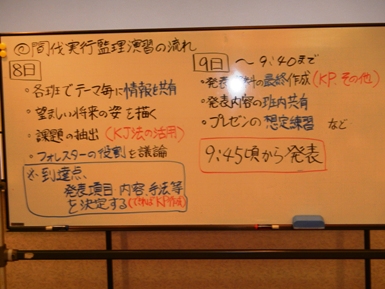 ◎間伐実行監理演習の流れ
8日
・各班でテーマ毎に情報を共有
・望ましい将来の姿を描く
・課題の抽出(KJ法の活用)
・フォレスターの役割を議論
※到達点
発表項目 内容、手法等
を決定する
9日 〜9:40まで
・発表資料の最終作成(KP、その他)
・発表内容の班内共有
・プレゼンの想定練習 など
9:45頃から発表